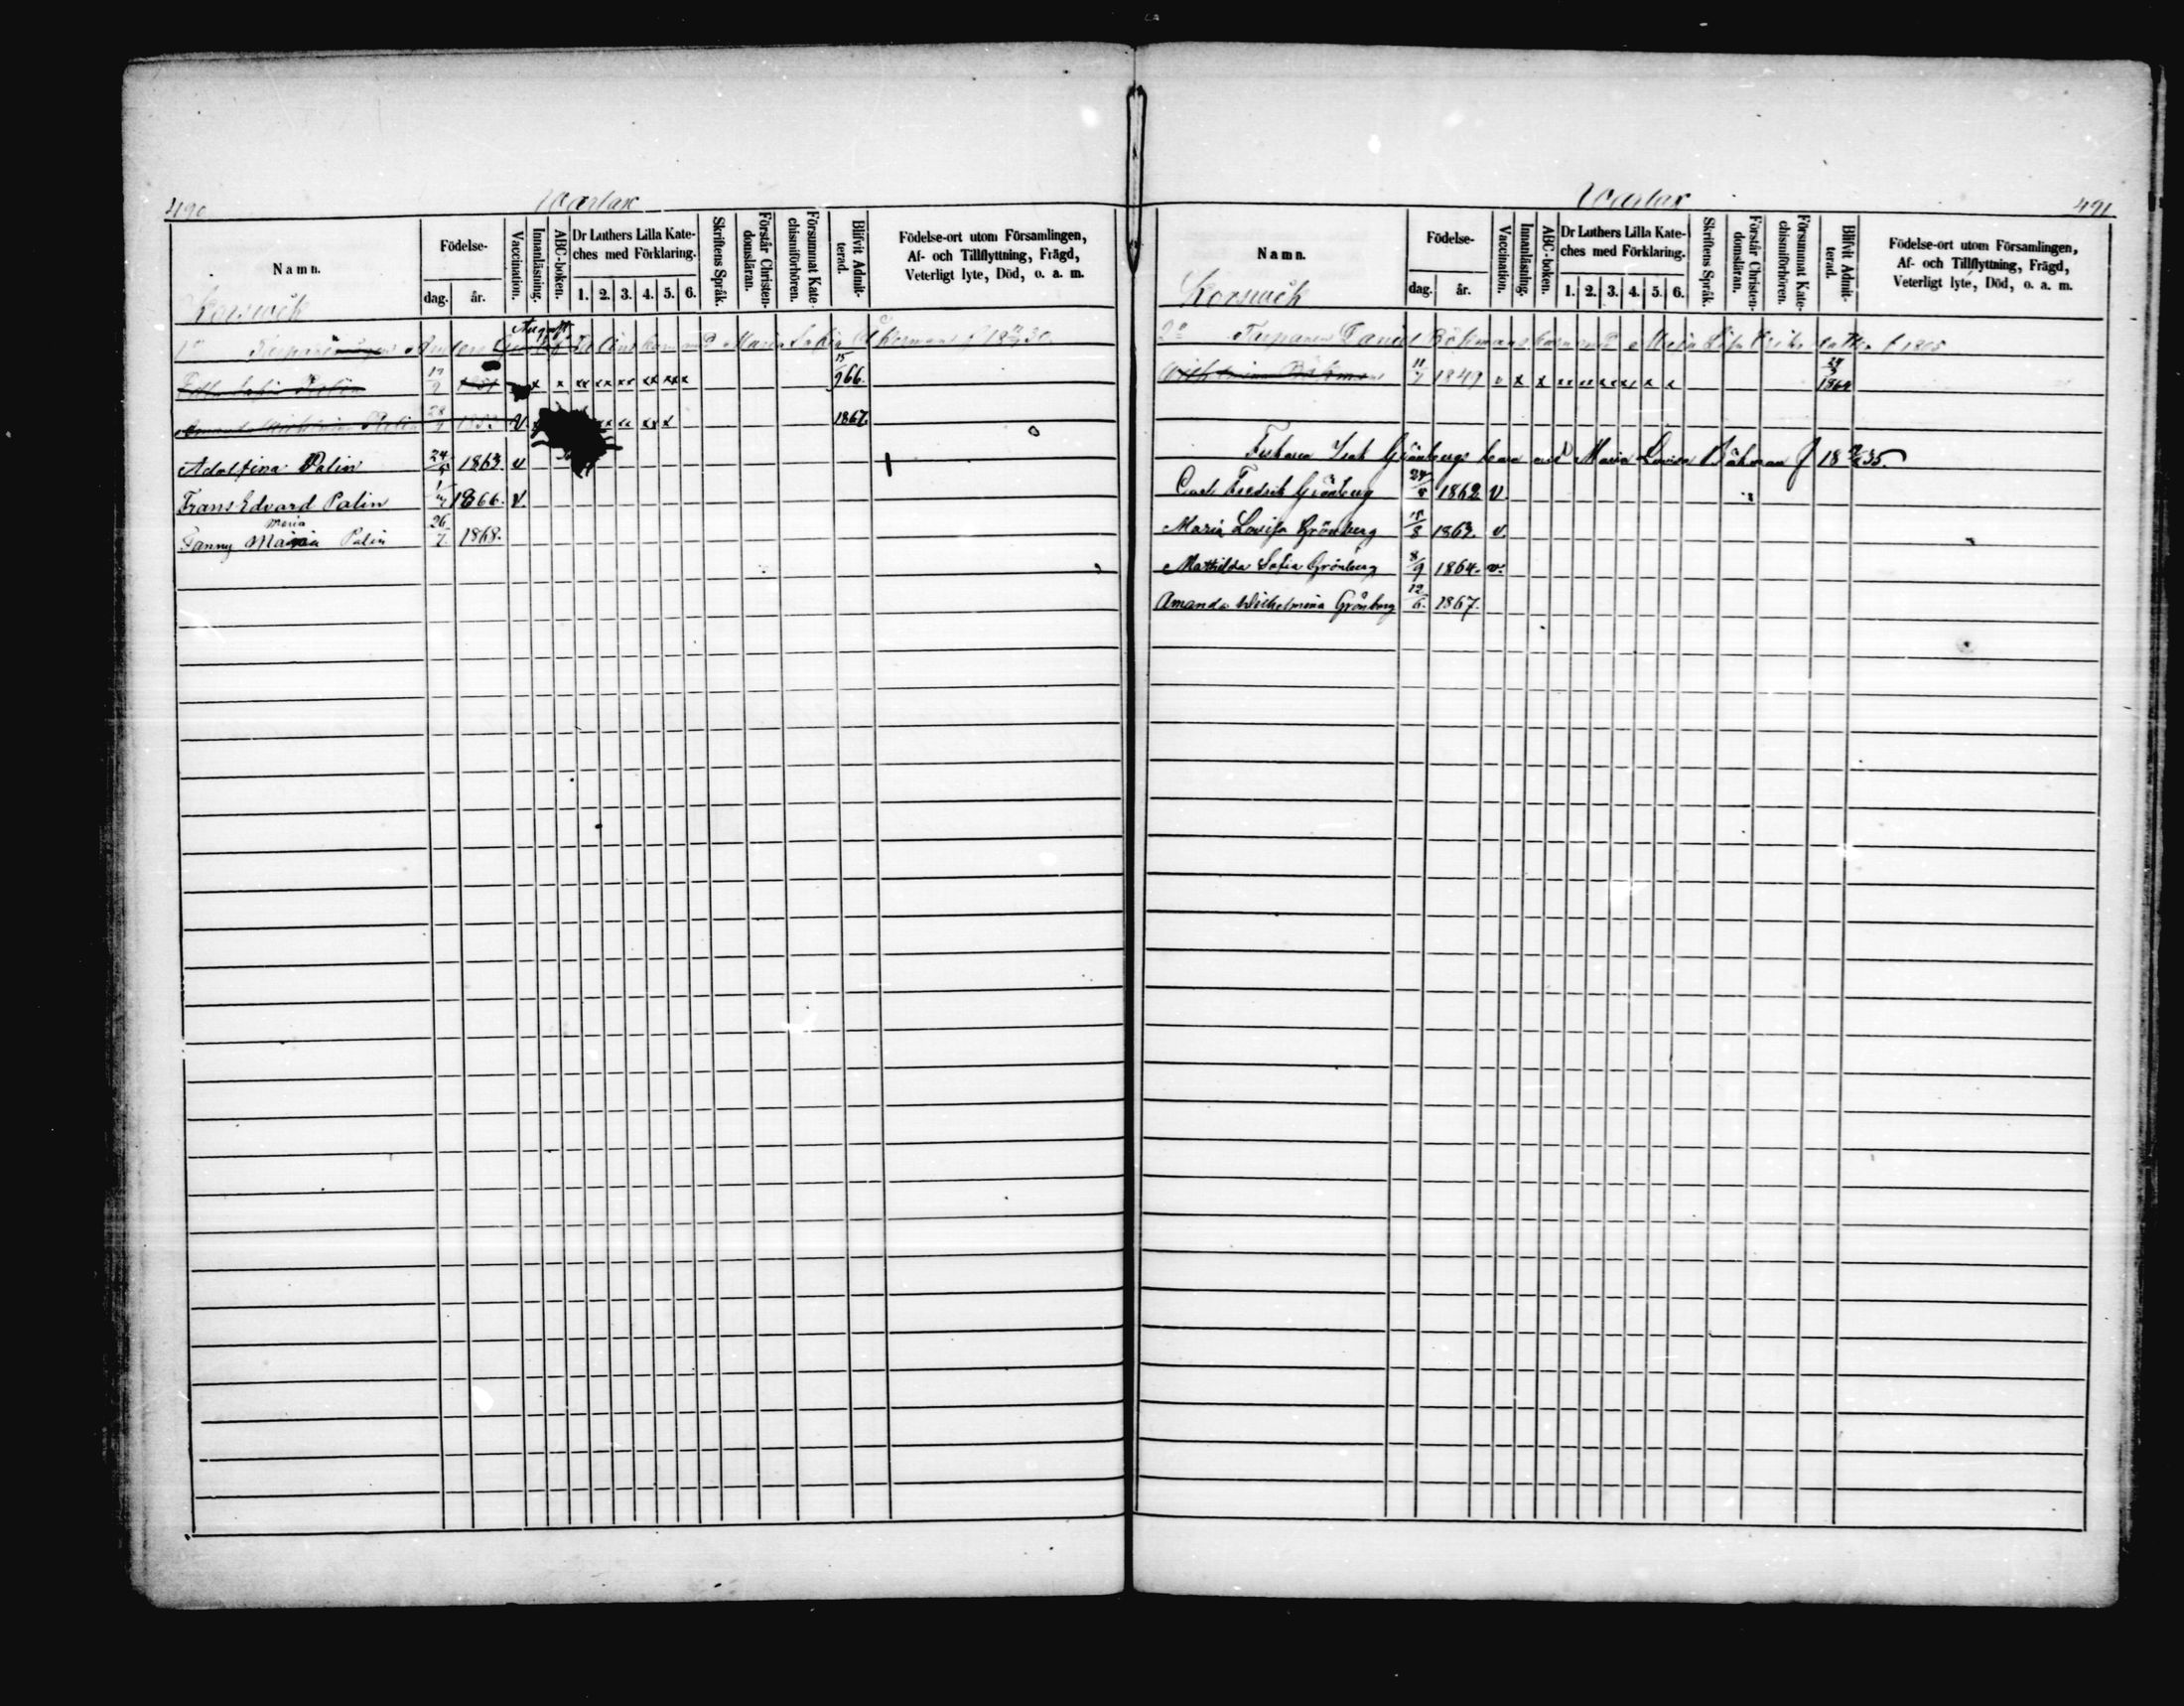 490
Warlax
Namn.
Födelse-
dag.
år.
Vaccination.
Innanläsning.
ABC-boken.
Dr Luthers Lilla Kate-
ches med Förklaring.
1. 2. 3. 4. 5. 6.
Skriftens Språk.
Förstår Christen-
domsläran.
Försummat Kate-
chismiförhören.
Blifvit Admit-
terad.
Födelse-ort utom Församlingen,
Af- och Tillflyttning, Frägd,
Veterligt lyte, Död, o. a. m.
Korswik
August
1o Anders Gustaf Palins barn med Maria Sofia
Edla Sofia Palin 17/9 1851 x x xx xx xx xx xxx 15/9 66.
Amanda Wilhelmina Palin 28/9 v. 1867.
Adolfina Palin 24/5 1863 v
Frans Edvard Palin 1866. v.
Maria
Fanny Maria Palin 26/7 1868.
491
Warlax
Namn.
Födelse-
dag.
år.
Vaccination.
Innanläsning.
ABC-boken.
Dr Luthers Lilla Kate-
ches med Förklaring.
1. 2. 3. 4. 5. 6.
Skriftens Språk.
Förstår Christen-
domsläran.
Försummat Kate-
chismiförhören.
Blifvit Admit-
terad.
Födelse-ort utom Församlingen,
Af- och Tillflyttning, Frägd,
Veterligt lyte, Död, o. a. m.
Korswik
2o Torparen Daniel Bökmans barn med Maja Lisa f 1805
Wilhelmina Bökman 11/7 1849 v x x 1864
Isak Grönbergs barn med Maria Lovisa Bökman f 18 35.
Carl Fredrik Grönberg 24/8 1862 v
Maria Lovisa Grönberg 15/8 1863. v.
Mathilda Sofia Grönberg 8/9 1864. v.
Amanda Wilhelmina Grönberg 12/6. 1867.